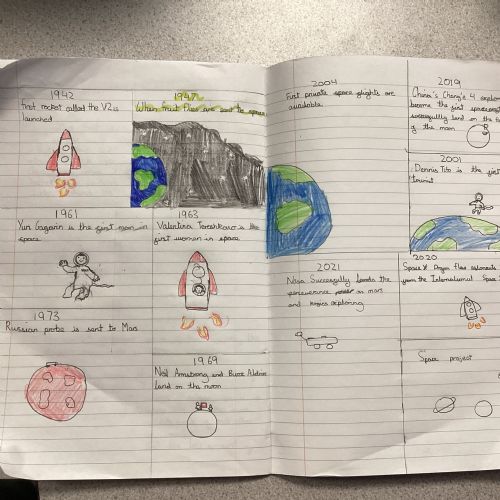 1942
first rocket called the V2 is
launched
1947
When fruit flies are sent to space
1961
Yuri Gagarin is the first man in
space
1963
Valentina Tereshkova is the
first women in space
1973
Russian probe is sent to Mars
1969
Neil Armstrong and Buzz Aldrin
land on the moon
2004
First private space flights are
available
2019
China's Chang'e 4 explorer
become the first spacecraft
successfully land on the
of the moon
2001
Dennis Tito is the first
tourist
2021
Nasa Successfully lands the
perseverance on mars
and begins exploring
2020
Space X Dragon flies astronauts
from the International Space
Space project